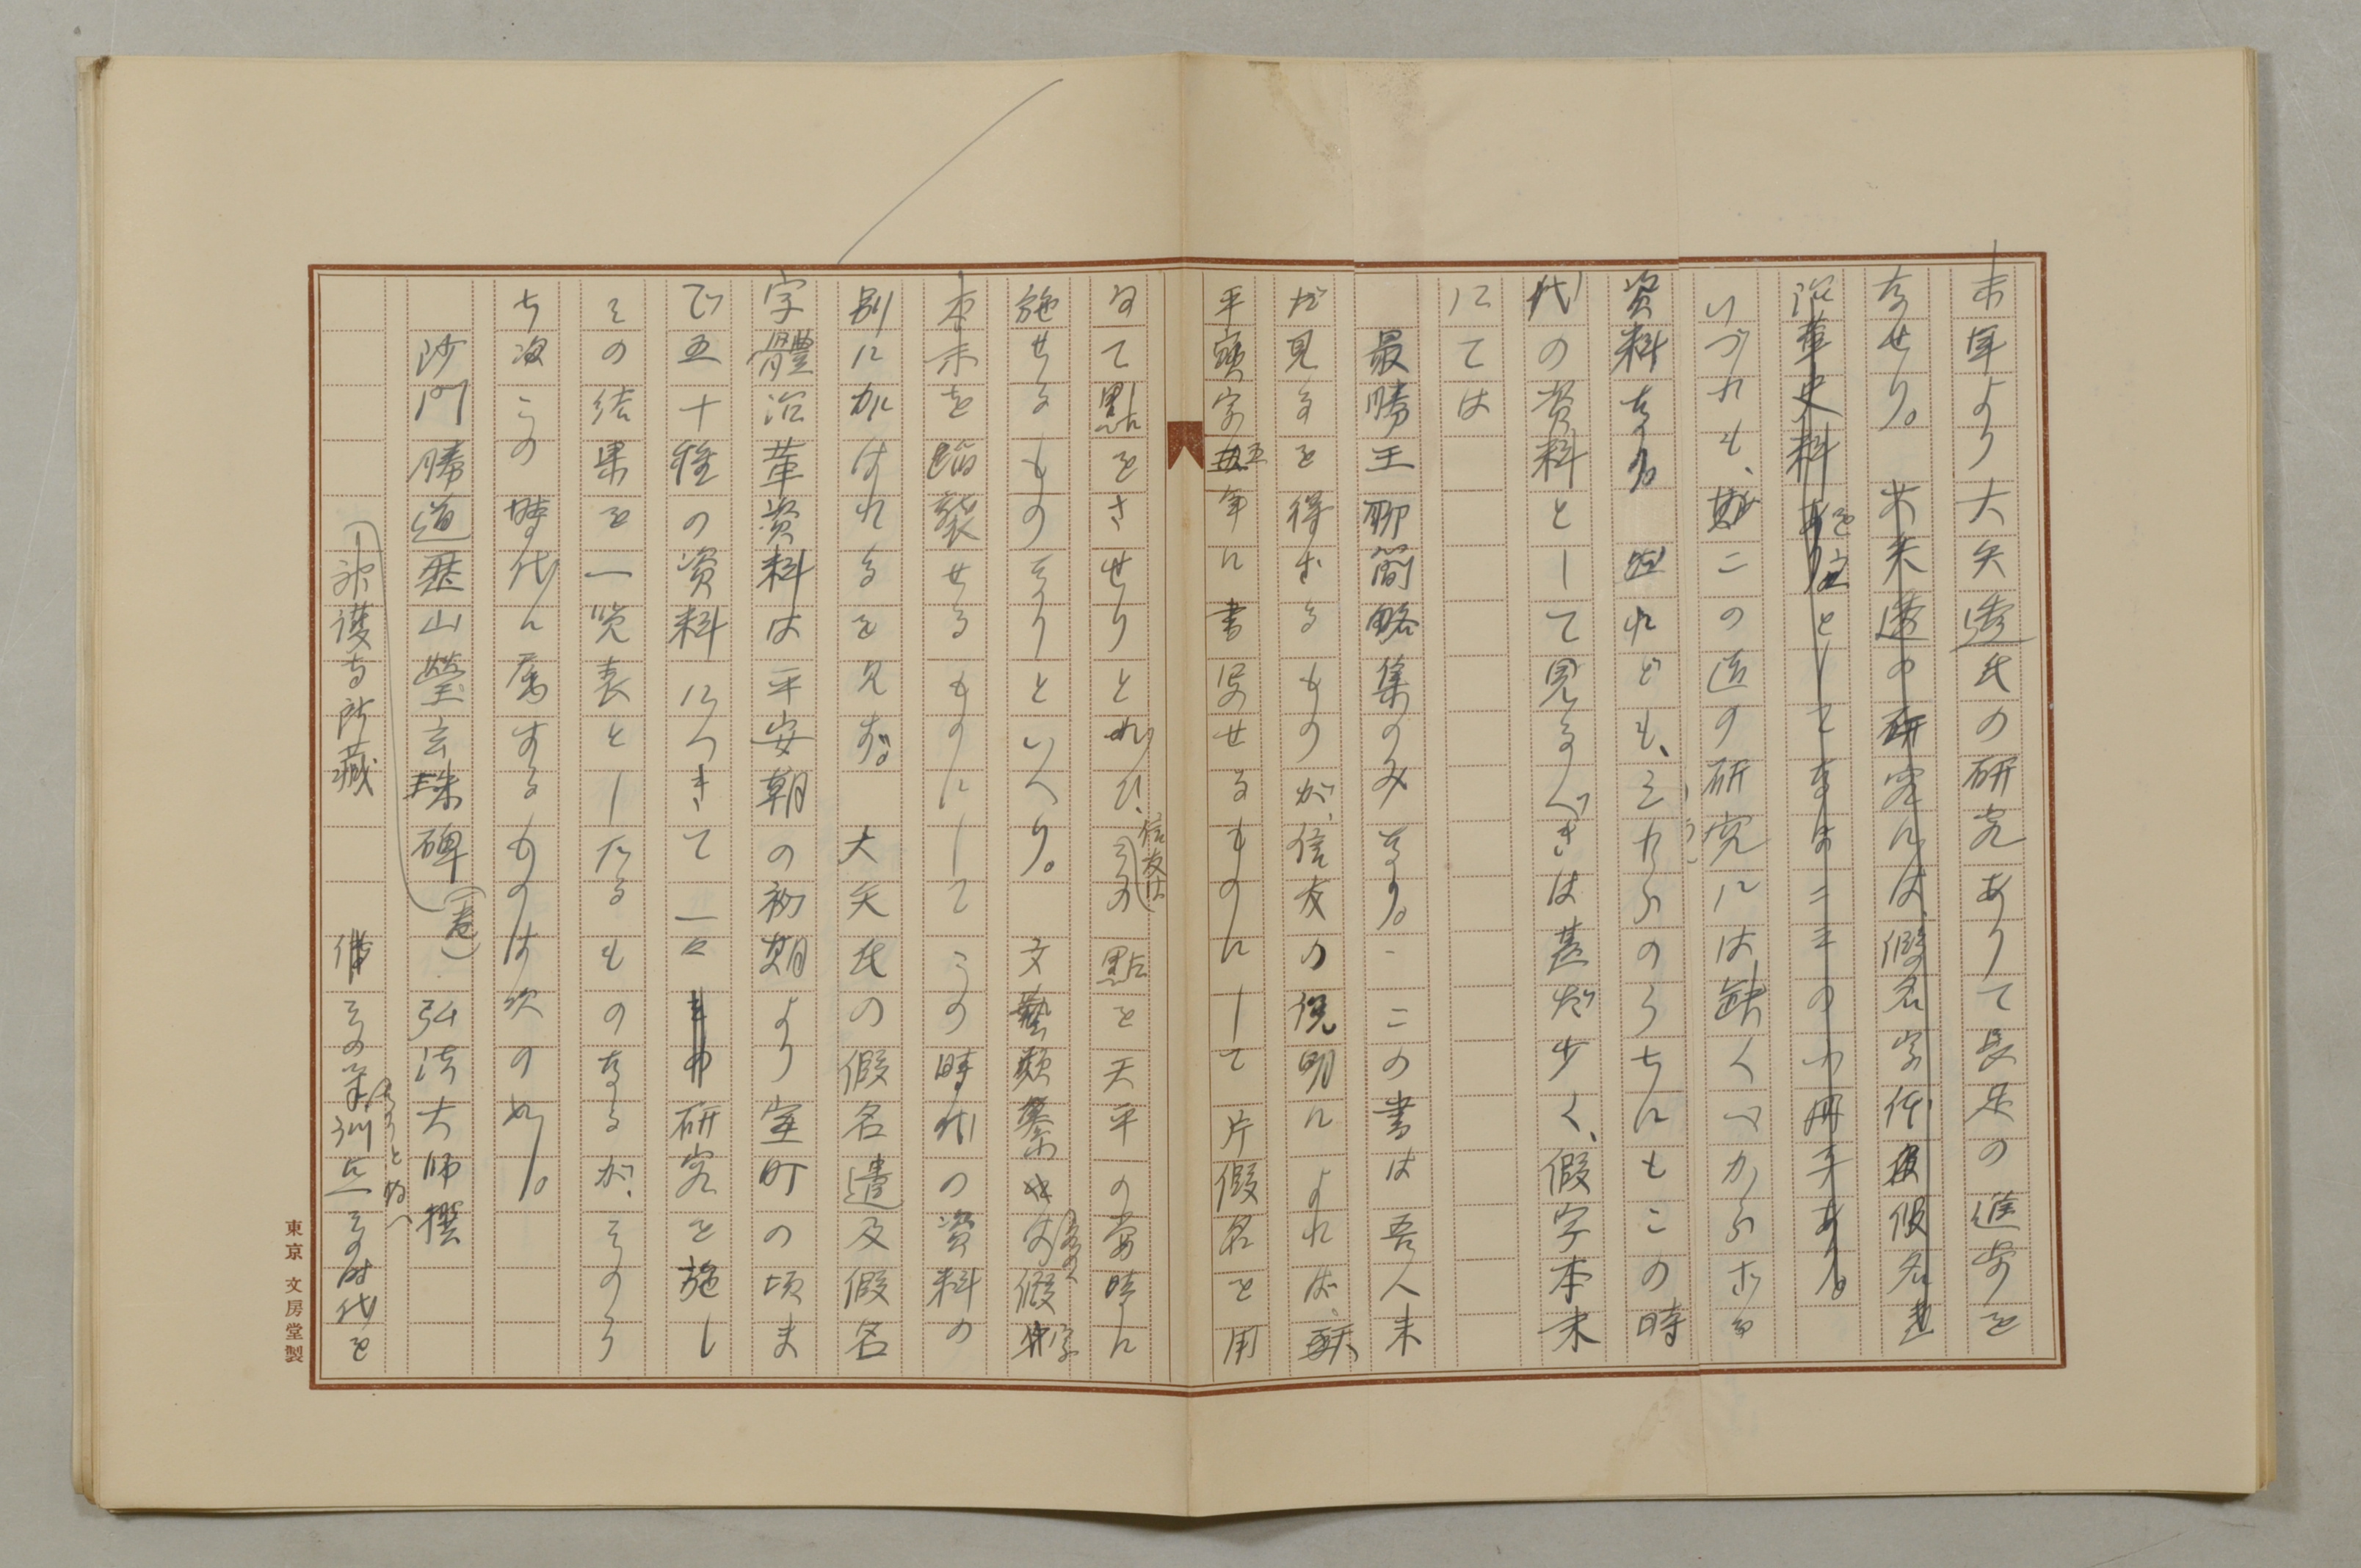 末年より大矢透氏の研究ありて長足の進歩を
なせり。大矢透の研究には、假名字体及假名遣
沿革史料を主としてなほ二三の小冊子あり。
いづれも、斯この道の研究には缺くべからざる
資料なり。然れども、それらのうちにもこの時
代の資料として見るべきは甚だ少く、假字本末
にては
最勝王
略集のみなり。この書は吾人未
だ見るを得ざるものが、信友の説明によれば、
平寳字五年に書写せるものにして片假名を用
ゐて點をさせりといひ、信友はその點を天平の當時に
施せるものなりといへり。文藝類纂は假字
本末を踏襲せるものにしてこの時代の資料の
別に加はれるを見ず。大矢氏の假名遣及假名
字體沿革資料は平安朝の初期より室町の頃ま
で五十種の資料につきて一々研究を施し
その結果を一覧表としたるものなるが、そのう
ち
この時代に属するものは次の如し。
沙門勝道歴山瑩玄珠碑(巻) 弘法大師撰
神護寺所藏 備その
訓点
その時代を
東京 文房堂製